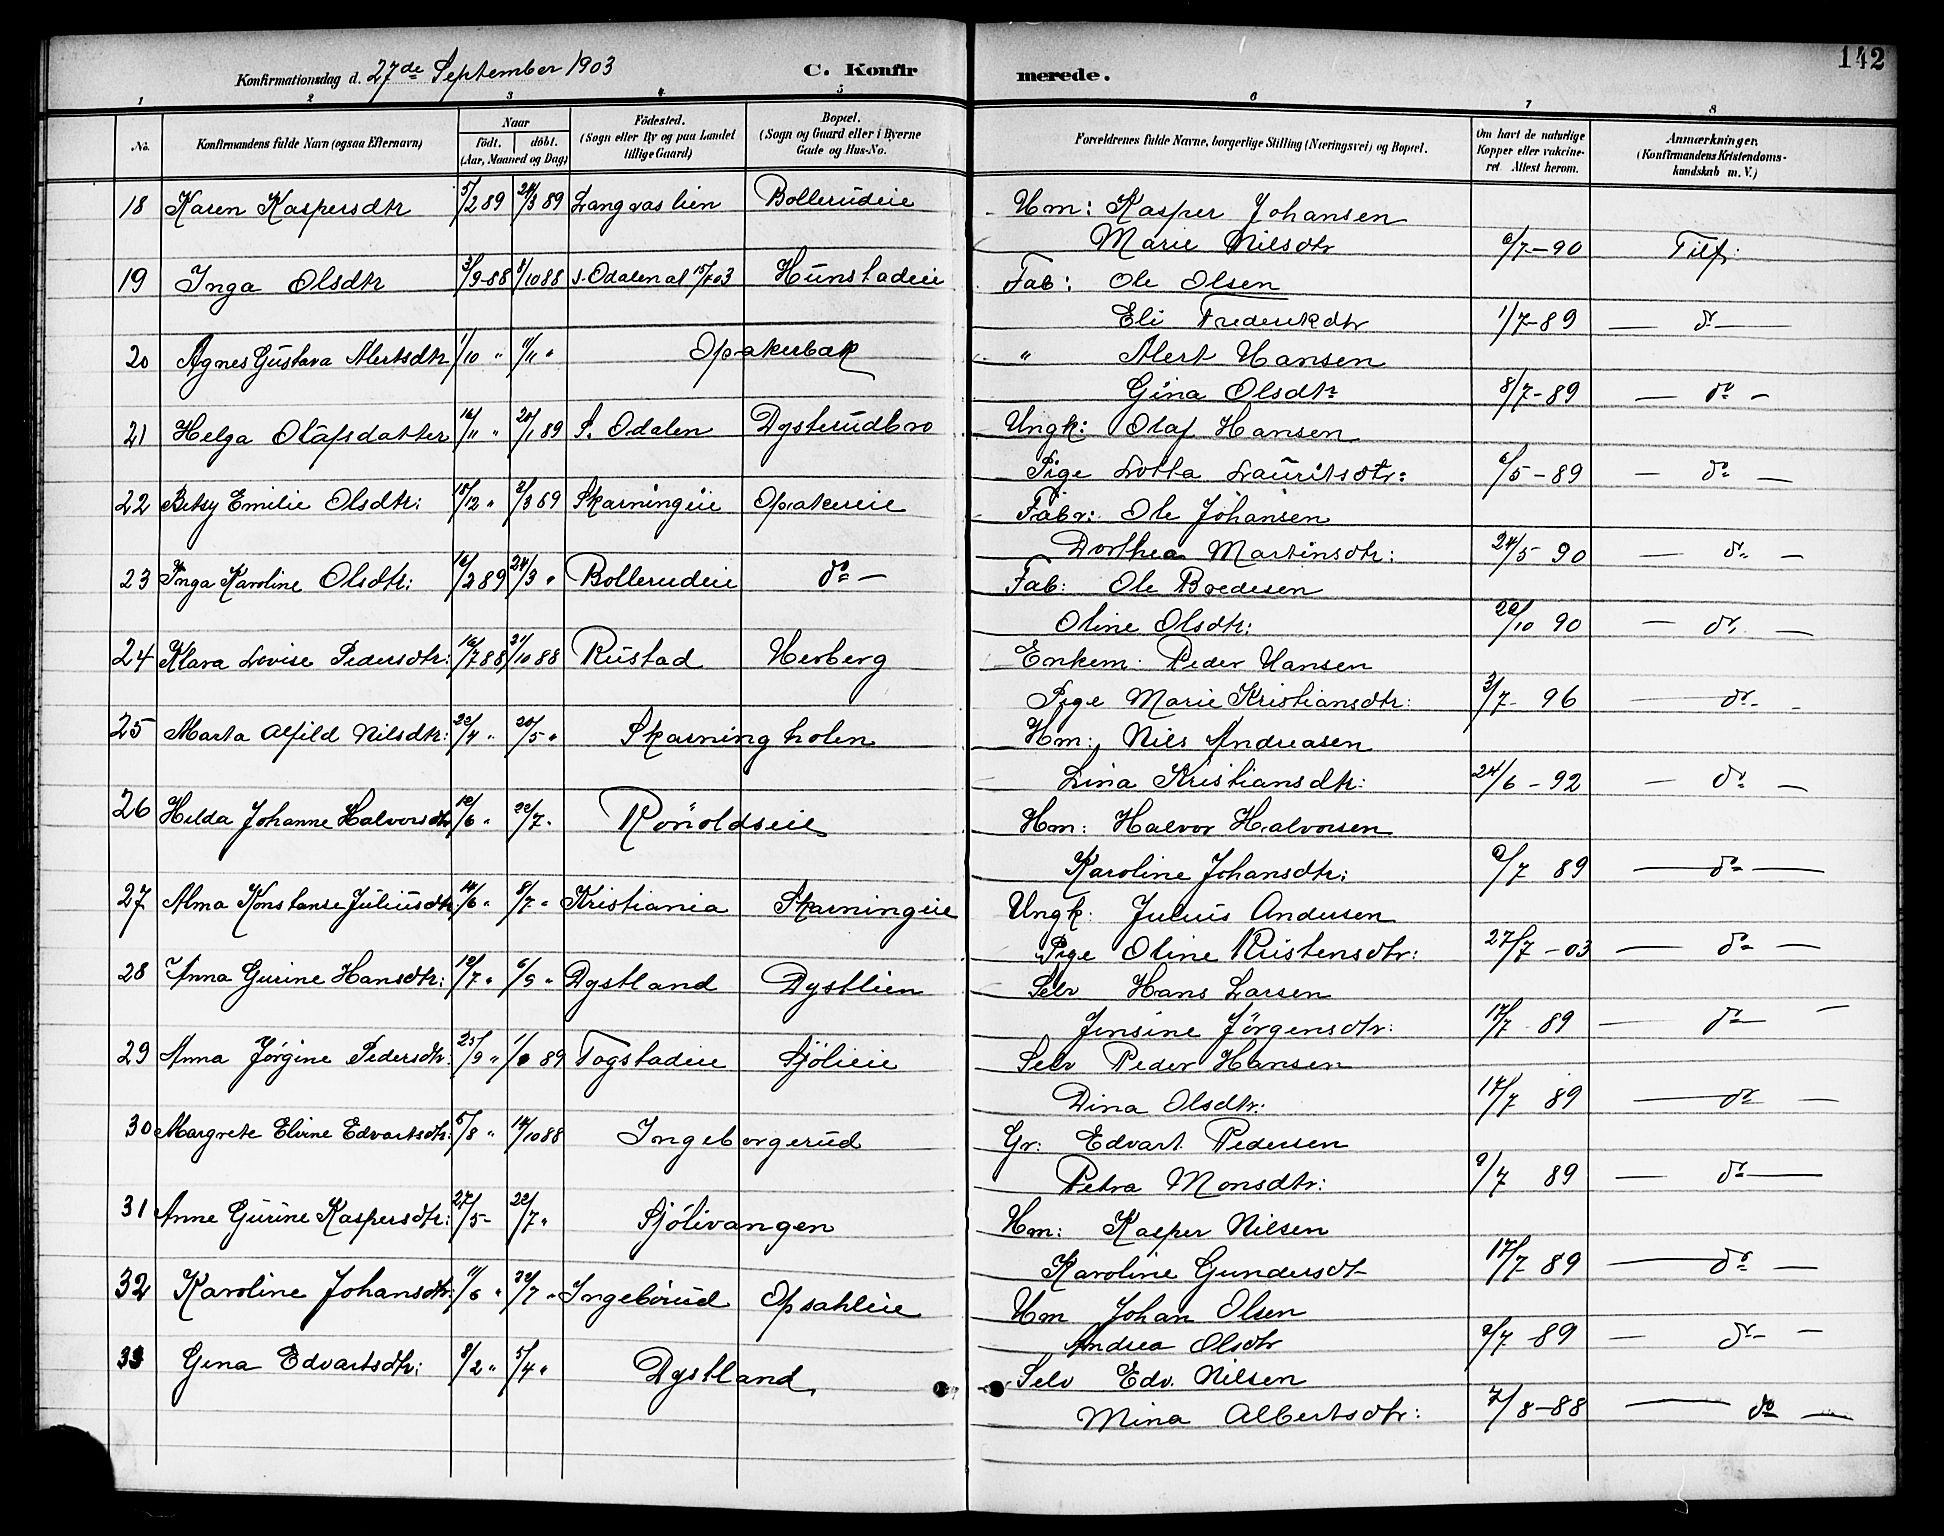 142
Konfirmationsdag d. 27de September 1903 C. Konfirmerede.
1 2 3 4 5 6 7 8
No. Konfirmandens fulde Navn (ogsaa Efternavn) Naar födt. döbt. (Aar, Maaned og Dag) Födested. (Sogn eller By og paa Landet tillige Gaard) Bopæl. (Sogn og Gaard eller i Byerne Gade og Hus-No. Forældrenes fulde Navne, borgerlige Stilling (Næringsvei) og Bopæl. Om havt de naturlige Kopper eller vakcineret. Attest herom. Anmærkninger. (Konfirmandens Kristendomskundskab m. V.)
18 Karen Kaspersdtr 5/2 89 24/3 89 Langaaslien Bollerudeie Hm: Kasper Johansen
Marie Nilsdtr 6/7-90 Tilf:
19 Inga Olsdtr 3/9-88 8/10 88 S. Odalen at 15/7 03 Hunstadeie Fab: Ole Olsen
Eli Frederikdtr 1/7-89 — do —
20 Agnes Gustava Alertsdtr 1/10 " 11/11 " Opakerbak " Alert Hansen
Gina Olsdtr 8/7-89 — do —
21 Helga Olafsdatter 16/11 " 20/1 89 S. Odalen Dysterudbro Ungk: Olaf Hansen
Pige Lotta Lauritsdtr: 6/5-89 — do —
22 Betsy Emilie Olsdtr: 18/12 " 3/3 89 Skarningeie Opakereie Fabr: Ole Johansen
Dorthea Martinsdtr: 24/5 90 — do —
23 Inga Karoline Olsdtr: 16/2 89 24/3 " Bollerudeie do — Fab: Ole Bredesen
Oline Olsdtr: 20/10 90 — do —
24 Klara Lovise Pedersdtr: 16/7 88 21/10 88 Rustad Herberg Enkem: Peder Hansen
Pige Marie Kristiansdtr: 3/7 - 96 — do -
25 Marta Alfild Nilsdtr: 22/4 " 20/5 " Skarningholen Hm: Nils Andreasen
Lina Kristiansdtr: 24/6-92 — do —
26 Hilda Johanne Halvorsdtr 12/6 " 22/7 " Rönoldseie Hm: Halvor Halvorsen
Karoline Johansdtr: 9/7 89 — do —
27 Alma Konstanse Juliusdtr 14/6 " 8/7 " Kristiania Skarningeie Ungk: Julius Andersen
Pige Oline Kristensdtr: 27/7-03 — do —
28 Anna Gurine Hansdtr: 12/7 " 6/9 " Dystland Dystlien Selv Hans Larsen
Jensine Jörgensdtr: 17/7 89 — do —
29 Anna Jörgine Pedersdtr: 25/9 " 89 Togstadeie Sjölieie Selv Peder Hansen
Dina Olsdtr: 17/7 89 — do —
30 Margrete Elvine Edvartsdtr: 5/8 " 14/10 88 Ingeborgerud Gr: Edvart Pedersen
Petra Monsdtr: 9/7 89 — do —
31 Anne Gurine Kaspersdtr: 27/5 - 22/7 " Sjölivangen Hm: Kasper Nilsen
Karoline Gundersdt 17/7 89 — do —
32 Karoline Johansdtr 11/6 " 22/7 " Ingeborud Opsahleie Hm Johan Olsen
Andrea Olsdtr 9/7 89 — do —
33 Gina Edvartsdtr: 8/2 " 5/4 " Dystland Selv Edv. Nilsen
Mina Albertsdtr: 7/8-88 — do —